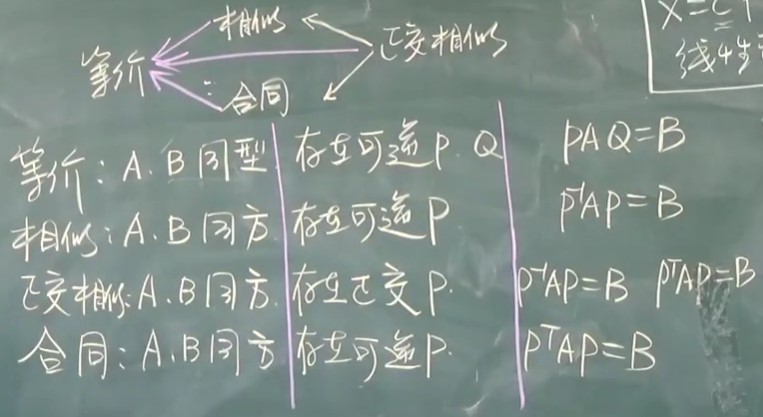 相似
等价 正交相似
合同
X=C
线性
等价：A.B同型 存在可逆P.Q PAQ=B
相似：A.B同方 存在可逆P P⁻¹AP=B
正交相似：A.B同方. 存在正交P. P⁻¹AP=B PᵀAP=B
合同：A.B同方 存在可逆P. PᵀAP=B